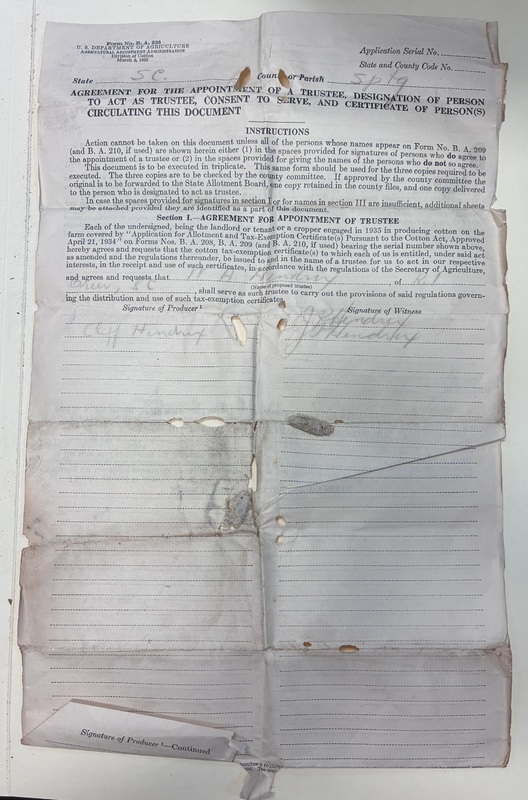 Form No. B. A. 226
U. S. DEPARTMENT OF AGRICULTURE
AGRICULTURAL ADJUSTMENT ADMINISTRATION
Division of Cotton
March 2, 1935
Application Serial No.
State and County Code No.
State SC County or Parish Sptg
AGREEMENT FOR THE APPOINTMENT OF A TRUSTEE, DESIGNATION OF PERSON
TO ACT AS TRUSTEE, CONSENT TO SERVE, AND CERTIFICATE OF PERSON(S)
CIRCULATING THIS DOCUMENT
INSTRUCTIONS
Action cannot be taken on this document unless all of the persons whose names appear on Form No. B. A. 209
(and B. A. 210, if used) are shown herein either (1) in the spaces provided for signatures of persons who do agree to
the appointment of a trustee or (2) in the spaces provided for giving the names of the persons who do not so agree.
This document is to be executed in triplicate. This same form should be used for the three copies required to be
executed. The three copies are to be checked by the county committee. If approved by the county committee the
original is to be forwarded to the State Allotment Board, one copy retained in the county files, and one copy delivered
to the person who is designated to act as trustee.
In case the spaces provided for signatures in section I or for names in section III are insufficient, additional sheets
may be attached provided they are identified as a part of this document.
Section I.—AGREEMENT FOR APPOINTMENT OF TRUSTEE
Each of the undersigned, being the landlord or tenant or a cropper engaged in 1935 in producing cotton on the
farm covered by "Application for Allotment and Tax-Exemption Certificate(s) Pursuant to the Cotton Act, Approved
April 21, 1934" on Forms Nos. B. A. 208, B. A. 209 (and B. A. 210, if used) bearing the serial number shown above,
hereby agrees and requests that the cotton tax-exemption certificate(s) to which each of us is entitled, under said act
as amended and the regulations thereunder, be issued to and in the name of a trustee for us to act in our respective
interests, in the receipt and use of such certificates, in accordance with the regulations of the Secretary of Agriculture,
and agrees and requests that Hendrix, of R.1
(Name of proposed trustee)
Greer, SC, shall serve as such trustee to carry out the provisions of said regulations govern-
ing the distribution and use of such tax-exemption certificates.
Signature of Producer ¹ Signature of Witness
J B Hendrix
Cliff Hendrix J B Hendrix
Signature of Producer ¹—Continued